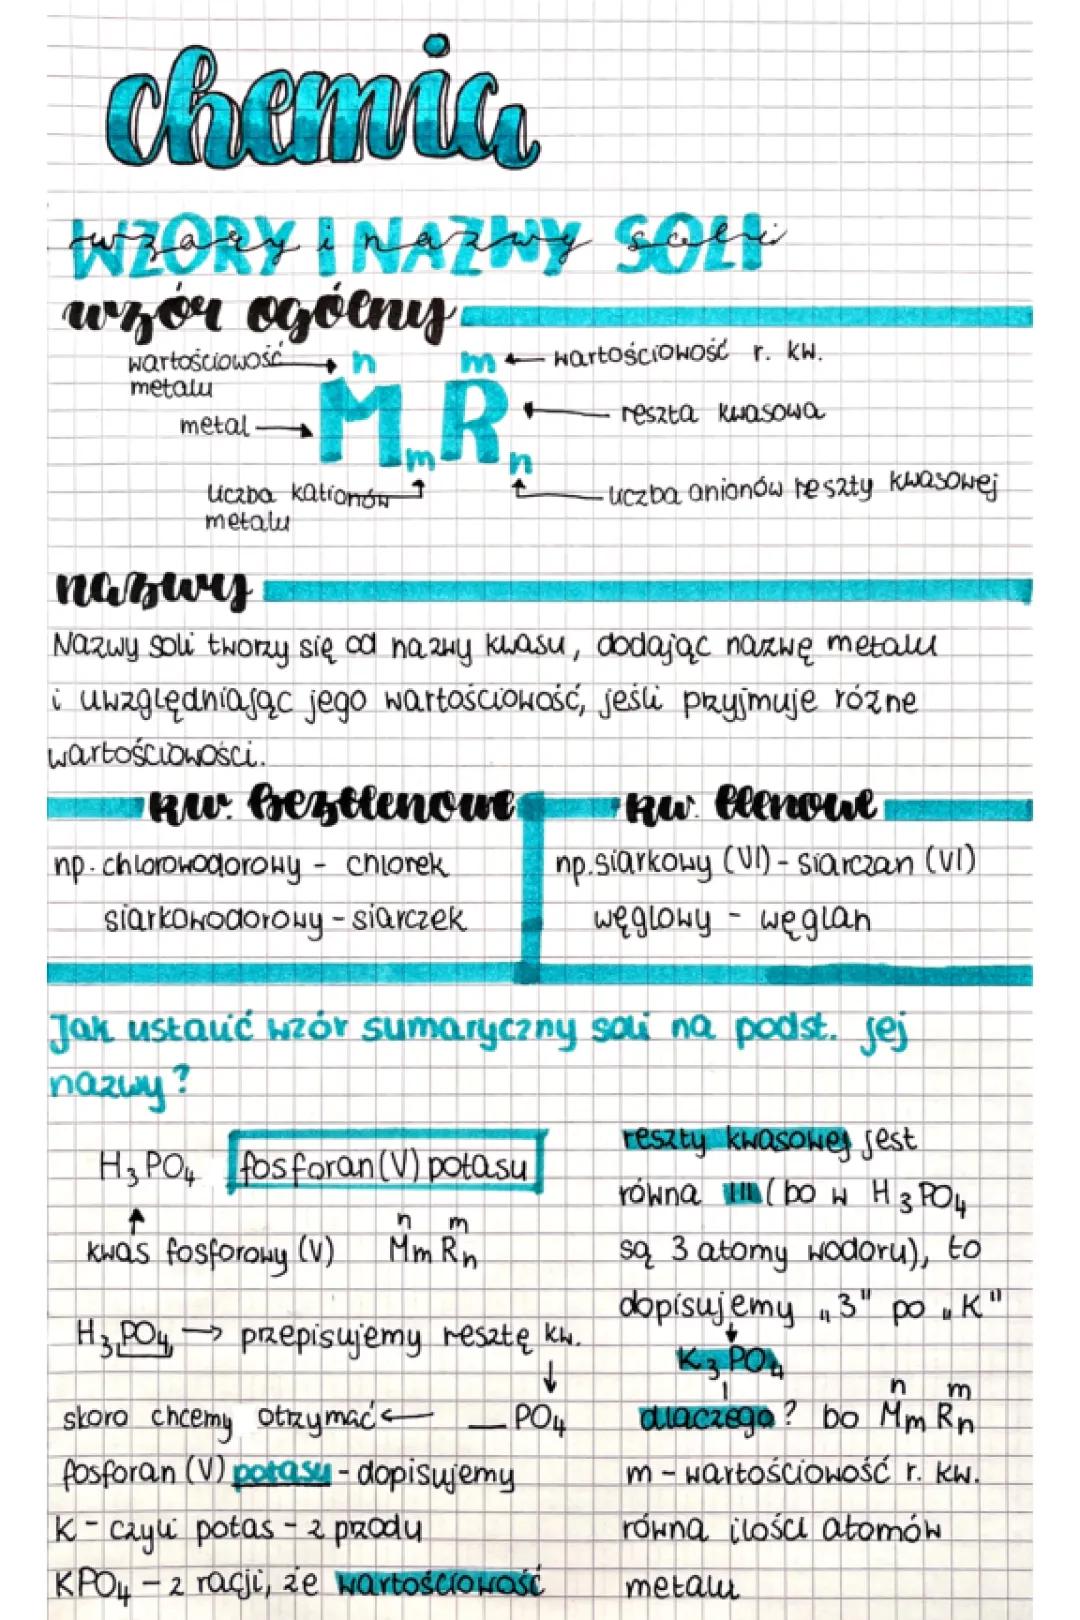 chemia
WZORY I NAZWY SOLI
wzory i nazwy soli
wzór ogólny
wartościowość
metalu
n m
wartościowość r. kw.
metal
MmRn
reszta kwasowa
liczba kationów
metalu
liczba anionów reszty kwasowej
nazwy
Nazwy soli tworzy się od nazwy kwasu, dodając nazwę metalu
i uwzględniając jego wartościowość, jeśli przyjmuje różne
wartościowości.
kw. beztlenowe
np. chlorowodorowy - chlorek
siarkowodorowy - siarczek
kw. tlenowe
np. siarkowy (VI) - siarczan (VI)
węglowy - węglan
Jak ustalić wzór sumaryczny soli na podst. jej
nazwy?
H₃PO₄ fosforan(V) potasu
n m
kwas fosforowy (V) MmRn
H₃PO₄ → przepisujemy resztę kw.
↓
skoro chcemy otrzymać ← _PO₄
fosforan (V) potasu - dopisujemy
K - czyli potas - z przodu
KPO₄ - z racji, że wartościowość
reszty kwasowej jest
równa III (bo w H₃PO₄
są 3 atomy wodoru), to
dopisujemy „3" po „K"
K₃PO₄
n m
dlaczego? bo MmRn
m - wartościowość r. kw.
równa ilości atomów
metalu